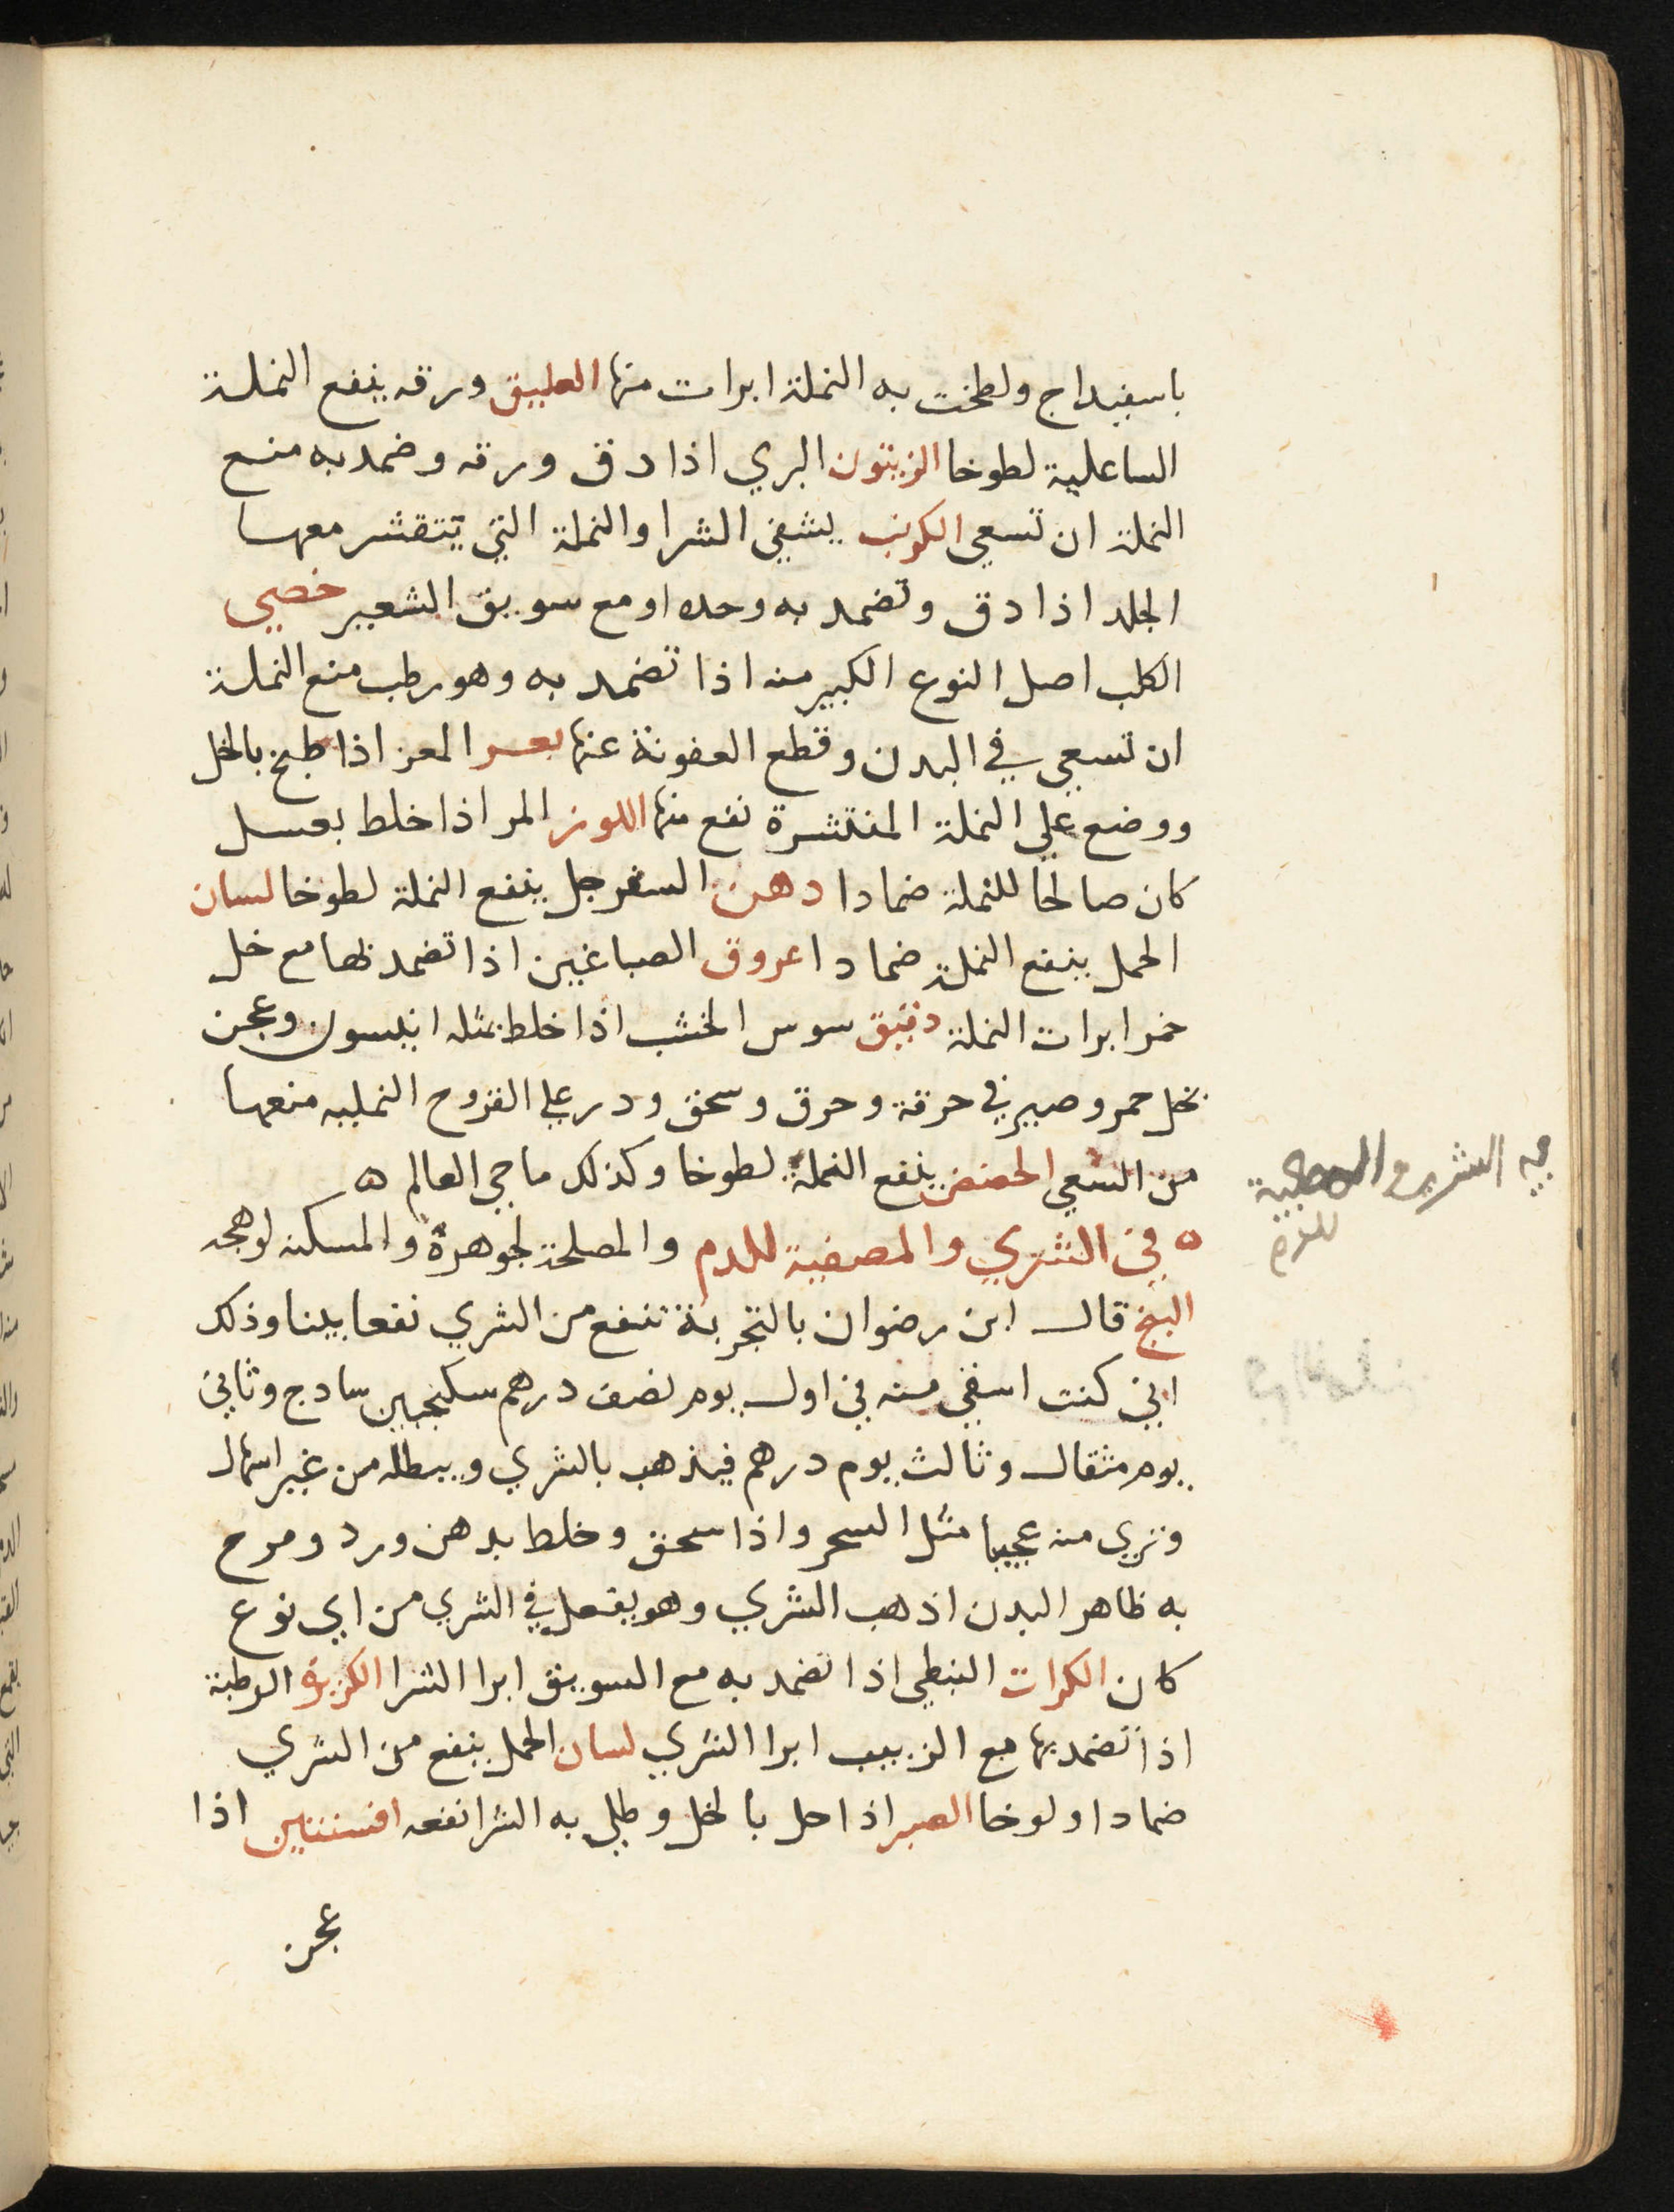 باسفيداج ولطخت به النملة ابرات منها العليق ورقه ينفع النملة
الساعلية لطوخا الزيتون البري اذا دق ورقه وضمد به منع
النملة ان تسعي الكرنب يشفي الشرا والنملة التي يتقشر معها
الجلد اذا دق وتضمد به وحده او مع سويق الشعير خصي
الكلب اصل النوع الكبير منه اذا تضمد به وهو رطب منع النملة
ان تسعي في البدن وقطع العفونة عنها بعر المعز اذا طبخ بالخل
ووضع علي النملة المنتشرة نفع منها اللوز المر اذا خلط بعسل
كان صالحا للنملة ضمادا دهن السفرجل ينفع النملة لطوخا لسان
الحمل ينفع النملة ضمادا عروق الصباغين اذا تضمد بها مع خل
خمر ابرات النملة دقيق سوس الخشب اذا خلط بمثله انيسون وعجن
بخل خمر وصير في خرقة وحرق وسحق ودر علي القروح النمليه منعها
من السعي الحضض ينفع النملة لطوخا وكذلك ماحي العالم ه
ه في الشري والمصفية للدم والمصلحة لجوهرة والمسكنه لوهجه
البنج قال ابن رضوان بالتجربة تنفع من الشري نفعا بينا وذلك
اني كنت اسقي منه في اول يوم نصف درهم سكنجبين سادج وثاني
يوم مثقال وثالث يوم درهم فيذهب بالشري ويبطله من غير اسهال
وتري منه عجيبا مثل السحر واذا سحق وخلط بدهن ورد ومرح
به ظاهر البدن اذهب الشري وهو يفعل في الشري من اي نوع
كان الكرات النبطي اذا تضمد به مع السويق ابرا الشرا الكزبرة الرطبة
اذا تضمد بها مع الزبيب ابرا الشري لسان الحمل ينفع من الشري
ضمادا ولوخا الصبر اذا حل بالخل وطلي به الشرا نفعه افسنتين اذا
عجن
فيه الشري والمصفية
للدم